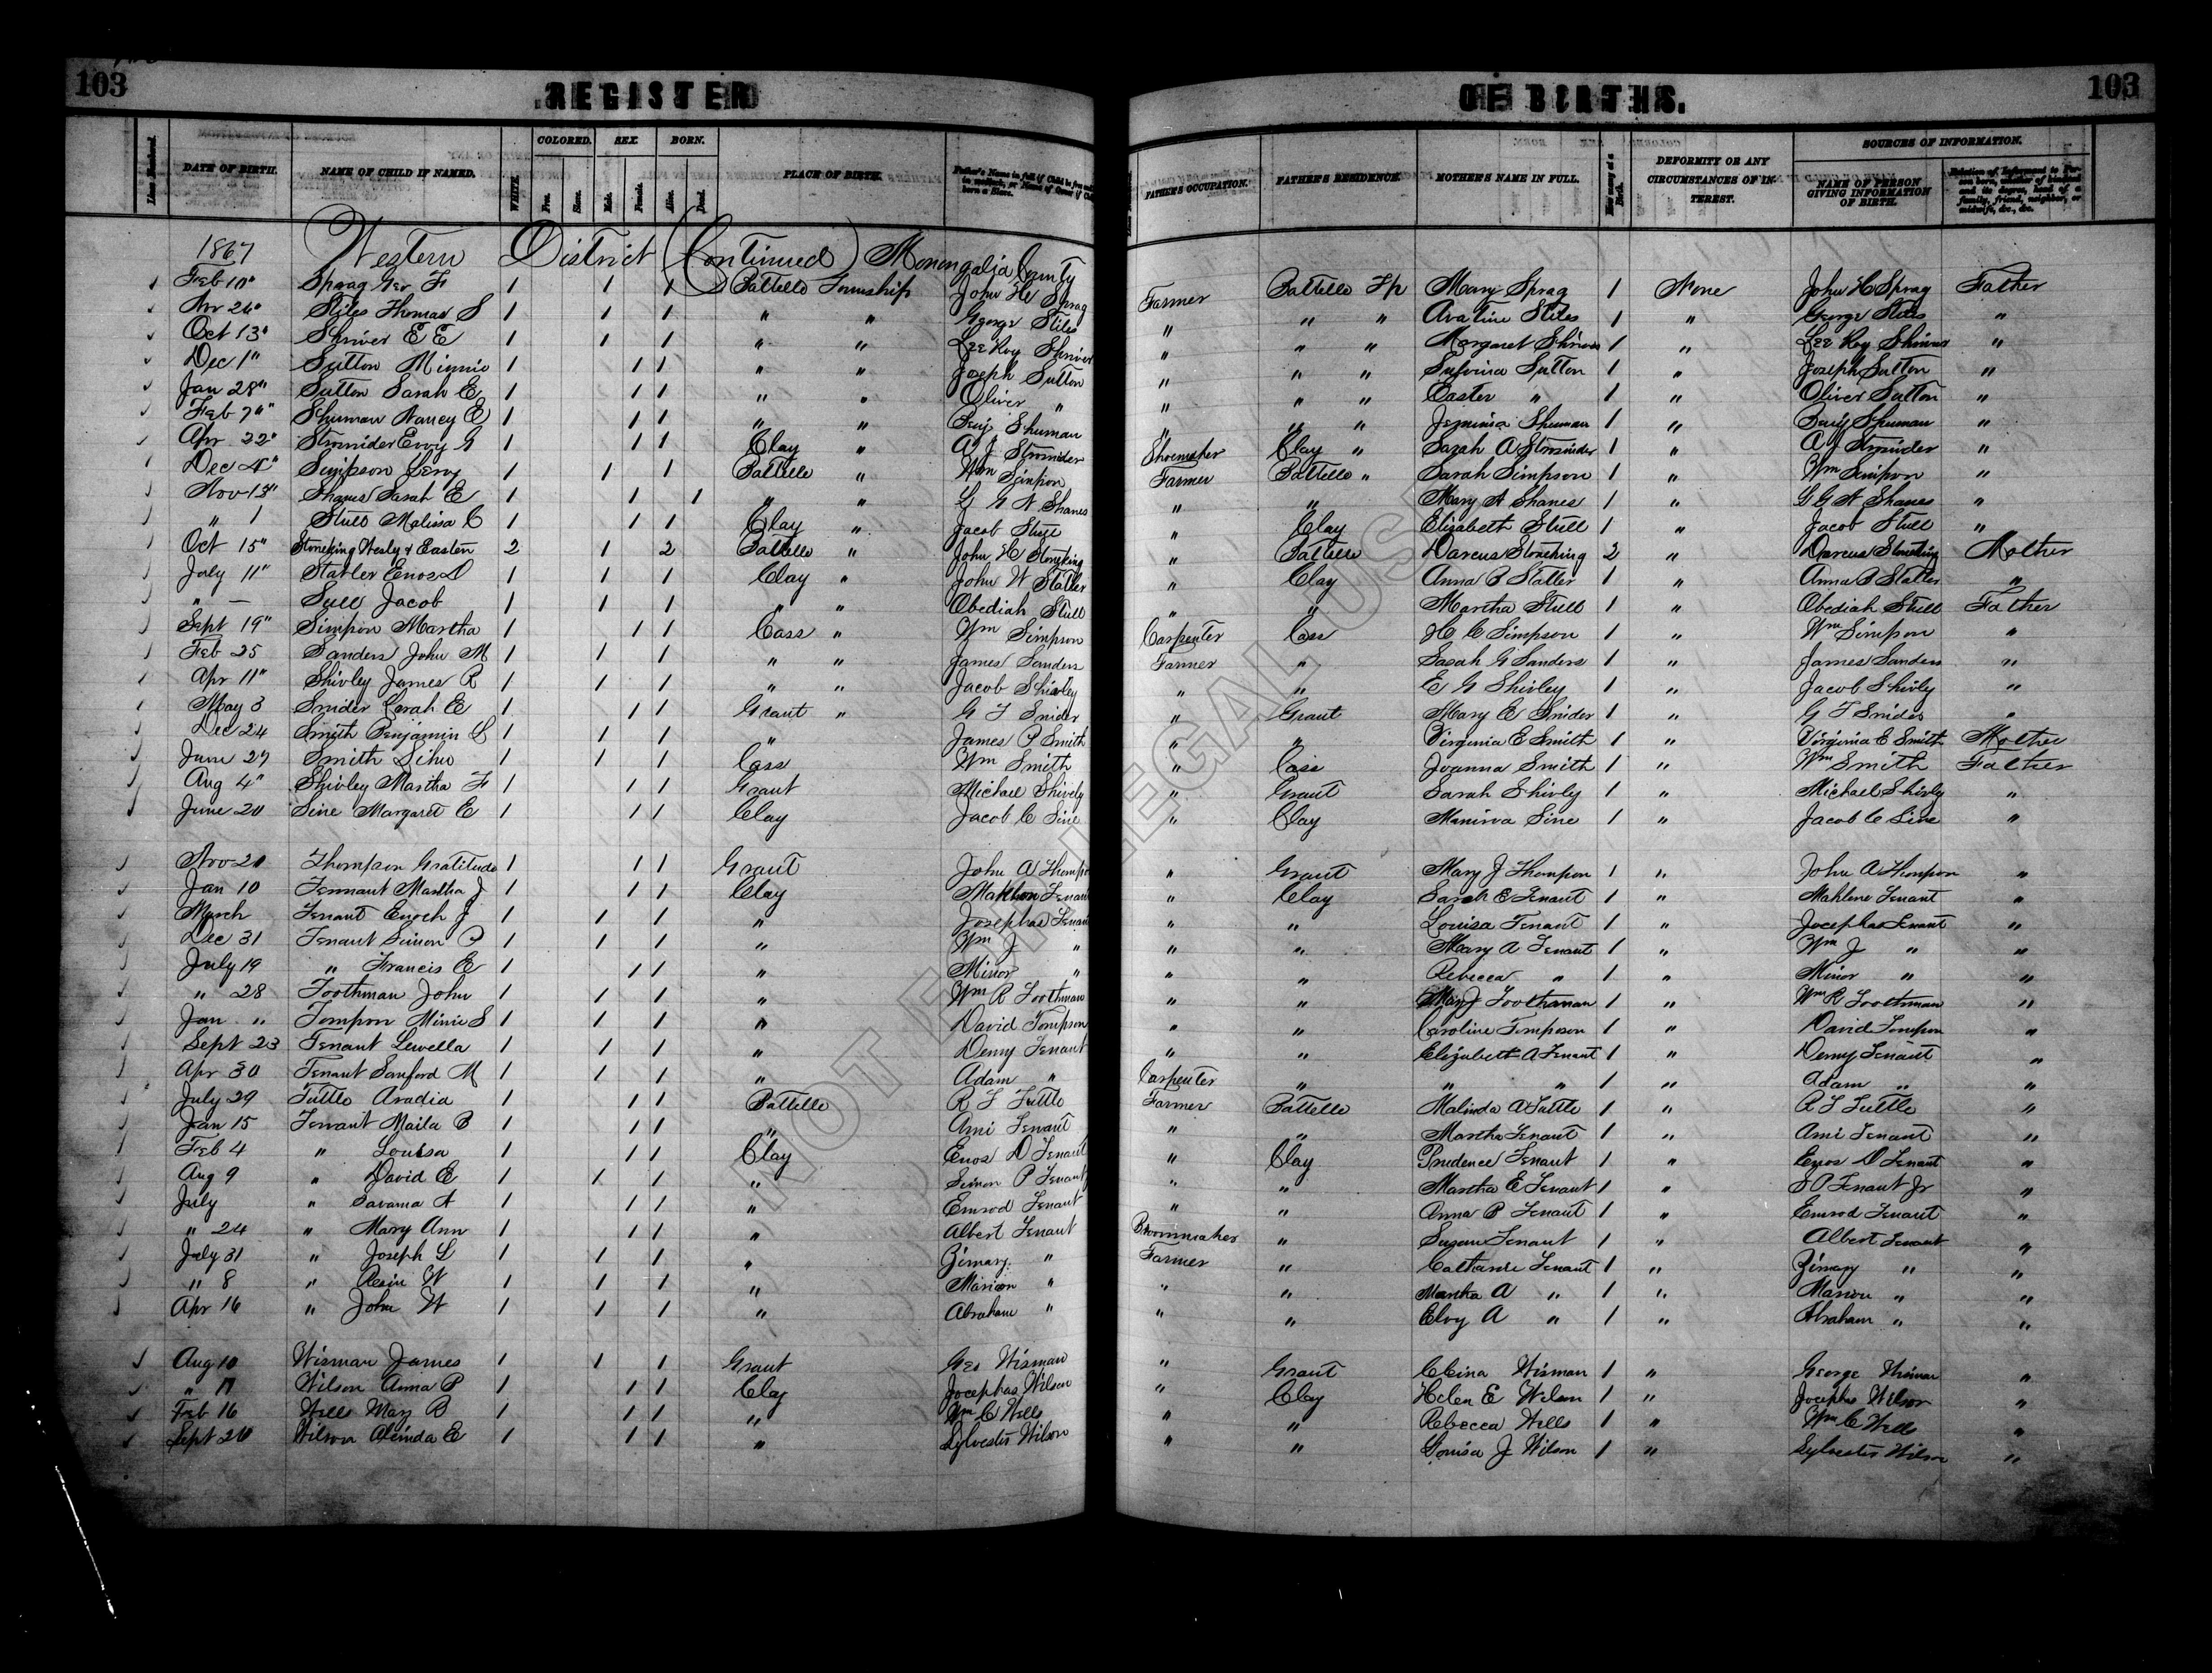 103 REGISTER OF BIRTHS. 103
Lines Numbered. DATE OF BIRTH. NAME OF CHILD IF NAMED. WHITE. COLORED. Free. Slave. SEX. Male. Female. BORN. Alive. Dead. PLACE OF BIRTH. Father's Name in full if Child be free FATHER'S OCCUPATION. FATHER'S RESIDENCE. MOTHER'S NAME IN FULL. How many at a Birth. DEFORMITY OR ANY CIRCUMSTANCES OF INTEREST. SOURCES OF INFORMATION. NAME OF PERSON GIVING INFORMATION OF BIRTH. Relation of Informant to Person born, whether of kindred and its degree, head of a family, friend, neighbor, or midwife, &c., &c.
1867 Western District (Continued) Monongalia County
Feb 10" Sprag Geo F 1 1 1 Battelle Township John H Sprag Farmer Battelle Tp Mary Sprag 1 None John H Sprag Father
Nov 26" Stiles Thomas S 1 1 1 " " George Stiles " " " Avaline Stiles 1 " George Stiles "
Oct 13" Shriver E E 1 1 1 " " Lee Roy Shriver " " " Margaret Shriver 1 " Lee Roy Shriver "
Dec 1" Sutton Minnie 1 1 1 " " Joseph Sutton " " " Sutton 1 " Joseph Sutton "
Jan 28" Sutton Sarah E 1 1 1 " " Oliver " " " " Easter " 1 " Oliver Sutton "
Feb 7" Shuman Nancy E 1 1 1 " " Benj Shuman " " " Jemima Shuman 1 " Benj Shuman "
Apr 22" G 1 1 1 Clay " A J Shoemaker Clay " Sarah A 1 " A J "
Dec 4" Simpson Leroy 1 1 1 Battelle " Wm Simpson Farmer Battelle " Sarah Simpson 1 " Wm Simpson "
Nov 13" Shanes Sarah E 1 1 1 " " Shanes " " Mary A Shanes 1 " Shanes "
" 1 Stull Malissa C 1 1 1 Clay " Jacob Stull " Clay Elizabeth Stull 1 " Jacob Stull "
Oct 15" Stoneking Wesly & Easten 2 1 2 Battelle " John H Stoneking " Battelle Darcus Stoneking 2 " Darcus Stoneking Mother
July 11" Statler Enos D 1 1 1 Clay " John W Statler " Clay Anna B Statler 1 " Anna B Statler "
" — Sull Jacob 1 1 1 " " Obediah Stull " " Martha Stull 1 " Obediah Stull Father
Sept 19" Simpson Martha 1 1 1 Cass " Wm Simpson Carpenter Cass H C Simpson 1 " Wm Simpson "
Feb 25 Sanders John M 1 1 1 " " James Sanders Farmer " Sarah G Sanders 1 " James Sanders "
Apr 11" Shivley James R 1 1 1 " " Jacob Shivley " " E G Shivley 1 " Jacob Shivly "
May 3 Snider Sarah E 1 1 1 Grant " G T Snider " Grant Mary E Snider 1 " G T Snider "
Dec 24 Smith Benjamin L 1 1 1 " James P Smith " " Virginia E Smith 1 " Virginia E Smith Mother
June 27 Smith 1 1 1 Cass Wm Smith " Cass Joanna Smith 1 " Wm Smith Father
Aug 4" Shivley Martha F 1 1 1 Grant Michael Shively " Grant Sarah Shivly 1 " Michael Shivly "
June 20 Sine Margaret E 1 1 1 Clay Jacob C Sine " Clay Manirva Sine 1 " Jacob C Sine "
Nov 21 Thompson Gratitude 1 1 1 Grant John A " Grant Mary J Thompson 1 " John A Thompson "
Jan 10 Tennant Martha J 1 1 1 Clay Mahlon Tenant " Clay Sarah E Tenant 1 " Mahlene Tenant "
March Tenant Enoch J 1 1 1 " Josephas Tenant " " Louisa Tenant 1 " Josephas Tenant "
Dec 31 Tenant Simon P 1 1 1 " Wm J " " " Mary A Tenant 1 " Wm J " "
July 19 " Francis E 1 1 1 " Minor " " " Rebecca " 1 " Minor " "
" 28 Toothman John 1 1 1 " Wm R Toothman " " Mary J Toothman 1 " Wm R Toothman "
Jan " Tompson Minie S 1 1 1 " David Tompson " " Caroline Tompson 1 " David Tompson "
Sept 23 Tenant Lewella 1 1 1 " Denny Tenant " " Elizabeth A Tenant 1 " Denny Tenant "
Apr 30 Tenant Sanford M 1 1 1 " Adam " Carpenter " " " 1 " Adam " "
July 29 Tuttle Aradia 1 1 1 Battelle R L Tuttle Farmer Battelle Malinda A Tuttle 1 " R L Tuttle "
Jan 15 Tenant Maila B 1 1 1 " Ami Tenant " " Martha Tenant 1 " Ami Tenant "
Feb 4 " Louisa 1 1 1 Clay Enos D Tenant " Clay Prudence Tenant 1 " Enos D Tenant "
Aug 9 " David E 1 1 1 " Simon P Tenant " " Martha E Tenant 1 " S P Tenant Jr "
July " Savama A 1 1 1 " Emrod Tenant " " Anna B Tenant 1 " Emrod Tenant "
" 24 " Mary Ann 1 1 1 " Albert Tenant Broommaker " Susan Tenant 1 " Albert Tenant "
July 31 " Joseph L 1 1 1 " Zimary " Farmer " Catharine Tenant 1 " Zimary " "
" 8 " Resin W 1 1 1 " Marion " " " Martha A " 1 " Marion " "
Apr 16 " John W 1 1 1 " Abraham " " " Elvy A " 1 " Abraham " "
Aug 10 Wisman James 1 1 1 Grant Geo Wisman " Grant Wisman 1 " George Wisman "
" 17 Wilson Anna P 1 1 1 Clay Josephas Wilson " Clay Helen E Wilson 1 " Josephus Wilson "
Feb 16 Wells Mary B 1 1 1 " Wm C Wells " " Rebecca Wells 1 " Wm C Wells "
Sept 20 Wilson Alcinda E 1 1 1 " Sylvester Wilson " " Louisa J Wilson 1 " Sylvester Wilson "
NOT FOR LEGAL USE